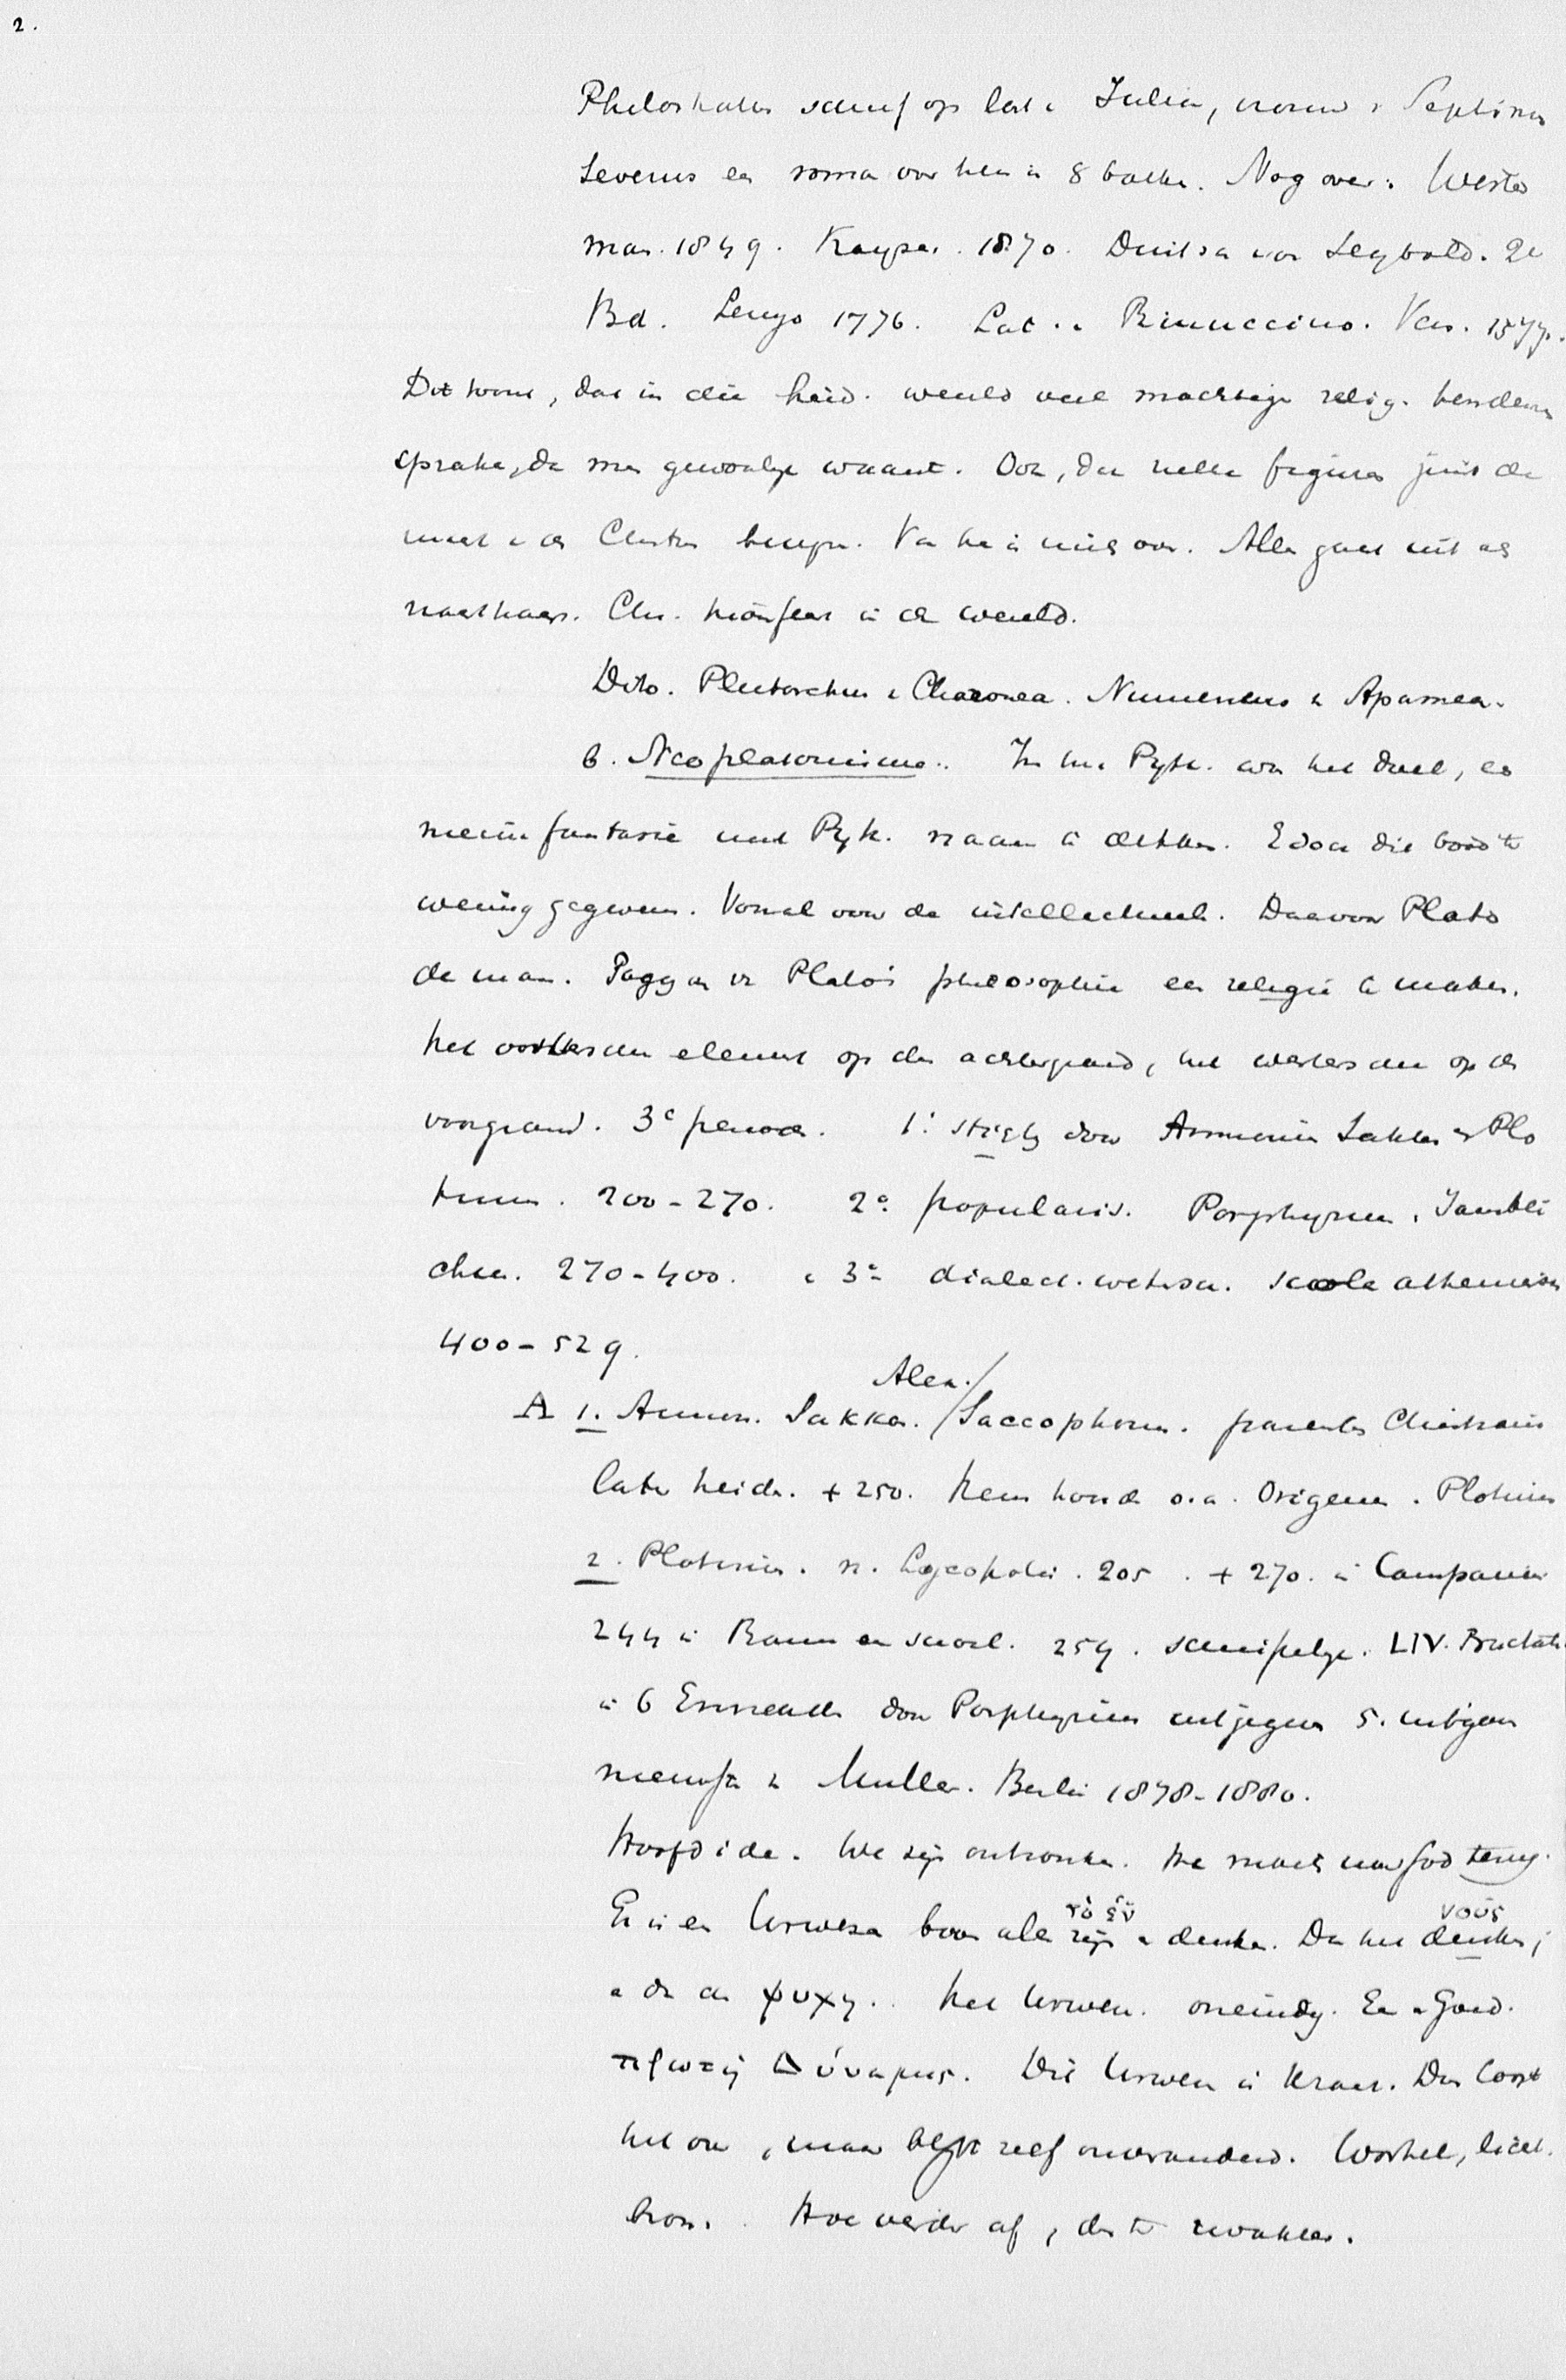 2.
Philostratus schreef op last v Julia, vrouw v Septimus
Severus een roman over hem in 8 boeken. Nog over: Wester
man. 1849. Kayser. 1870. Duitsch van Seybold. 2e
Bd. Lemgo 1776. Lat. v Rinuccino. Ven. 1577.
Dit toont, dat in die heid. wereld veel machtiger relig. tendens
sprake, dan men gewoonlijk waant. Ook, dat zulke figuren juist de
maat v de Christus Alles gaat uit als
nachtkaars. Chr. triomfeert in de wereld.
Dito. Plutarchus v Chaeronea. Numenius v Apamea.
b. Neoplatonisme. In het Pyth. was het doel, een
nieuwe fantasie met Pyth. naam te dekken. Edoch die bood te
weinig gegevens. Vooral voor de intellectueele. Daarvoor Plato
de man. Poging om v Plato's philosophie een religie te maken.
Het oostersche element op den achtergrond, het westersche op de
voorgrond. 3e periode. 1e sticht. door Ammonius Sakkas en Plo
tinus. 200-270. 2e popularis. Porphyrius, Jambli
chus. 270-400. 3e dialect. wetensch. school atheensch
400-529.
Alex.
A 1. Ammon. Sakkas. / Saccophorus. parentes Christiani
later heiden. + 250. Hem hoorde o.a. Origenes. Plotinus
2. Plotinus. n. Lycopolis. 205. + 270. in Campanie
244 in Rome en school. 254. schriftelijk. LIV. Tractat.
in 6 Enneaden door Porphyrius uitgegeven 5. uitgave
nieuwste v Muller. Berlin 1878-1880.
Hoofdidee. We zijn ontzonken. We moeten naar God terug.
τὸ ἕν νοῦς
Er is een Urwesen boven alle zijn en denken. Dan het denken,
en dan de ψυχη. Het Urwesen. oneindig. Een en Goed.
πρωτη Δύναμις. Dit Urwesen is Kracht. Dus loopt
het over, maar blijft zelf onveranderd. Wortel, licht.
bron. Hoe verder af, des te zwakker.